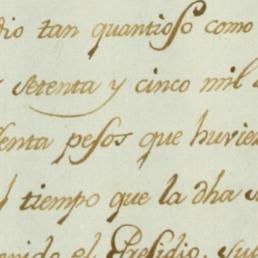 dio tan quantioso como
setenta y cinco mil
enta pesos que huvie
tiempo que la dha
enido el Presidio, su